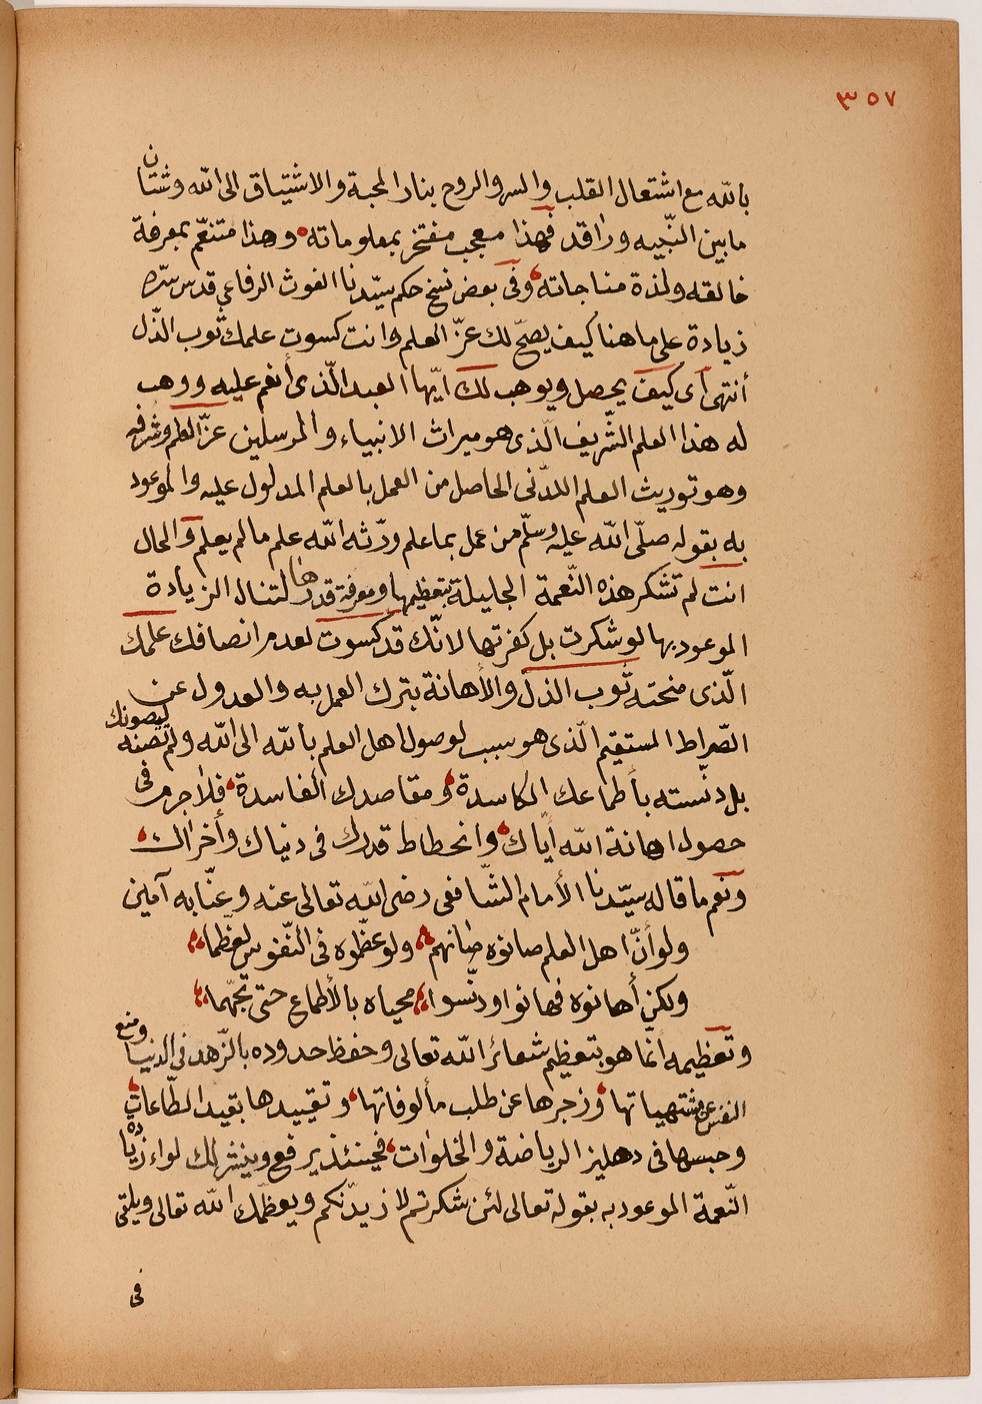 ٣٥٧
بالله مع اشتعال القلب والسر والروح بنار المحبة والاشتياق الى الله وشتان
ما بين النّبيه وراقد فهذا معجب مفتخر بمعلوماته وهذا متنعّم بمعرفة
خالقه ولذة مناجاته وفى بعض نسخ حكم سيّدنا الغوث الرفاعي قدس سرّه
زيادة على ما هنا كيف يصحّ لك عزّ العلم وانت كسوت علمك ثوب الذّل
أنتهى أى كيف يحصل ويوهب لك ايّها العبد الّذى أنعم عليه ووهب
له هذا العلم الشّريف الّذى هو ميراث الانبياء والمرسلين عزّ العلم وشرفه
وهو توريث العلم اللدّنى الحاصل من العمل بالعلم المدلول عليه والموعود
به بقوله صلّى الله عليه وسلّم من عمل بما علم ورّثه الله علم ما لم يعلم والحال
انت لم تشكر هذه النّعمة الجليلة بتعظيمها ومعرفة قدرها لتنال الزيادة
الموعود بها لو شكرت بل كفرتها لانّك قد كسوت لعدم انصافك علمك
الّذى منحته ثوب الذلّ والأهانة بترك العمل به والعدول عن
الصّراط المستقيم الّذى هو سبب لوصول اهل العلم بالله الى الله ولم تصنه ليصونك
بل دنّسته بأطماعك الكاسدة ومقاصدك الفاسدة فلا جرم فى
حصول اهانة الله ايّاك وانحطاط قدرك فى دنياك وأخراك
ونعم ما قاله سيّدنا الأمام الشّافعى رضى الله تعالى عنه وعنّا به آمين
ولو أنّ اهل العلم صانوه صانهم ولو عظّموه فى النّفوس لعظّما
ولكن أهانوه فهانوا ودنّسوا محياه بالأطماع حتى تجهّما
وتعظيمه انّما هو بتعظيم شعائر الله تعالى وحفظ حدوده بالزّهد فى الدنيا ومنع
النفس عن مشتهياتها وزجرها عن طلب مألوفاتها وتقييدها بقيد الطّاعات
وحبسها فى دهليز الرياضة والخلوات فحينئذ يرفع وينشر لك لواء زيادة
النّعمة الموعود به بقوله تعالى لئن شكرتم لازيدّنكم ويعظّمك الله تعالى ويلقى
فى